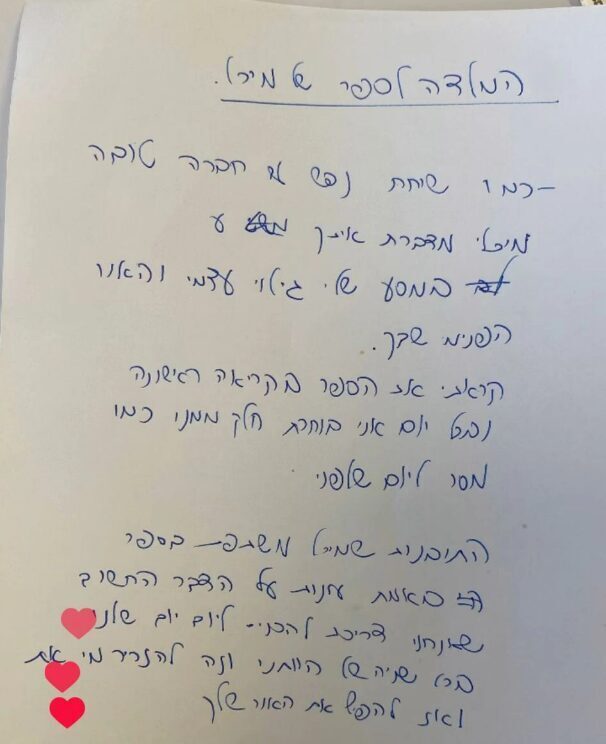 המלצה לספר של מיכל.
- כמו שיחת נפש עם חברה טובה
מיכלי מדברת איתך ע
במסע של גילוי עצמי והאור
הפנימי שבך.
קראתי את הספר בקריאה ראשונה
וכל יום אני בוחרת חלק ממנו כמו
מסר ליום שלפני
התובנות שמיכל משתפת בספר
באמת עונות על הדבר החשוב
שאנחנו צריכות להכניס ליום יום שלנו
שניה של
ואיך להפיץ את האור שלך